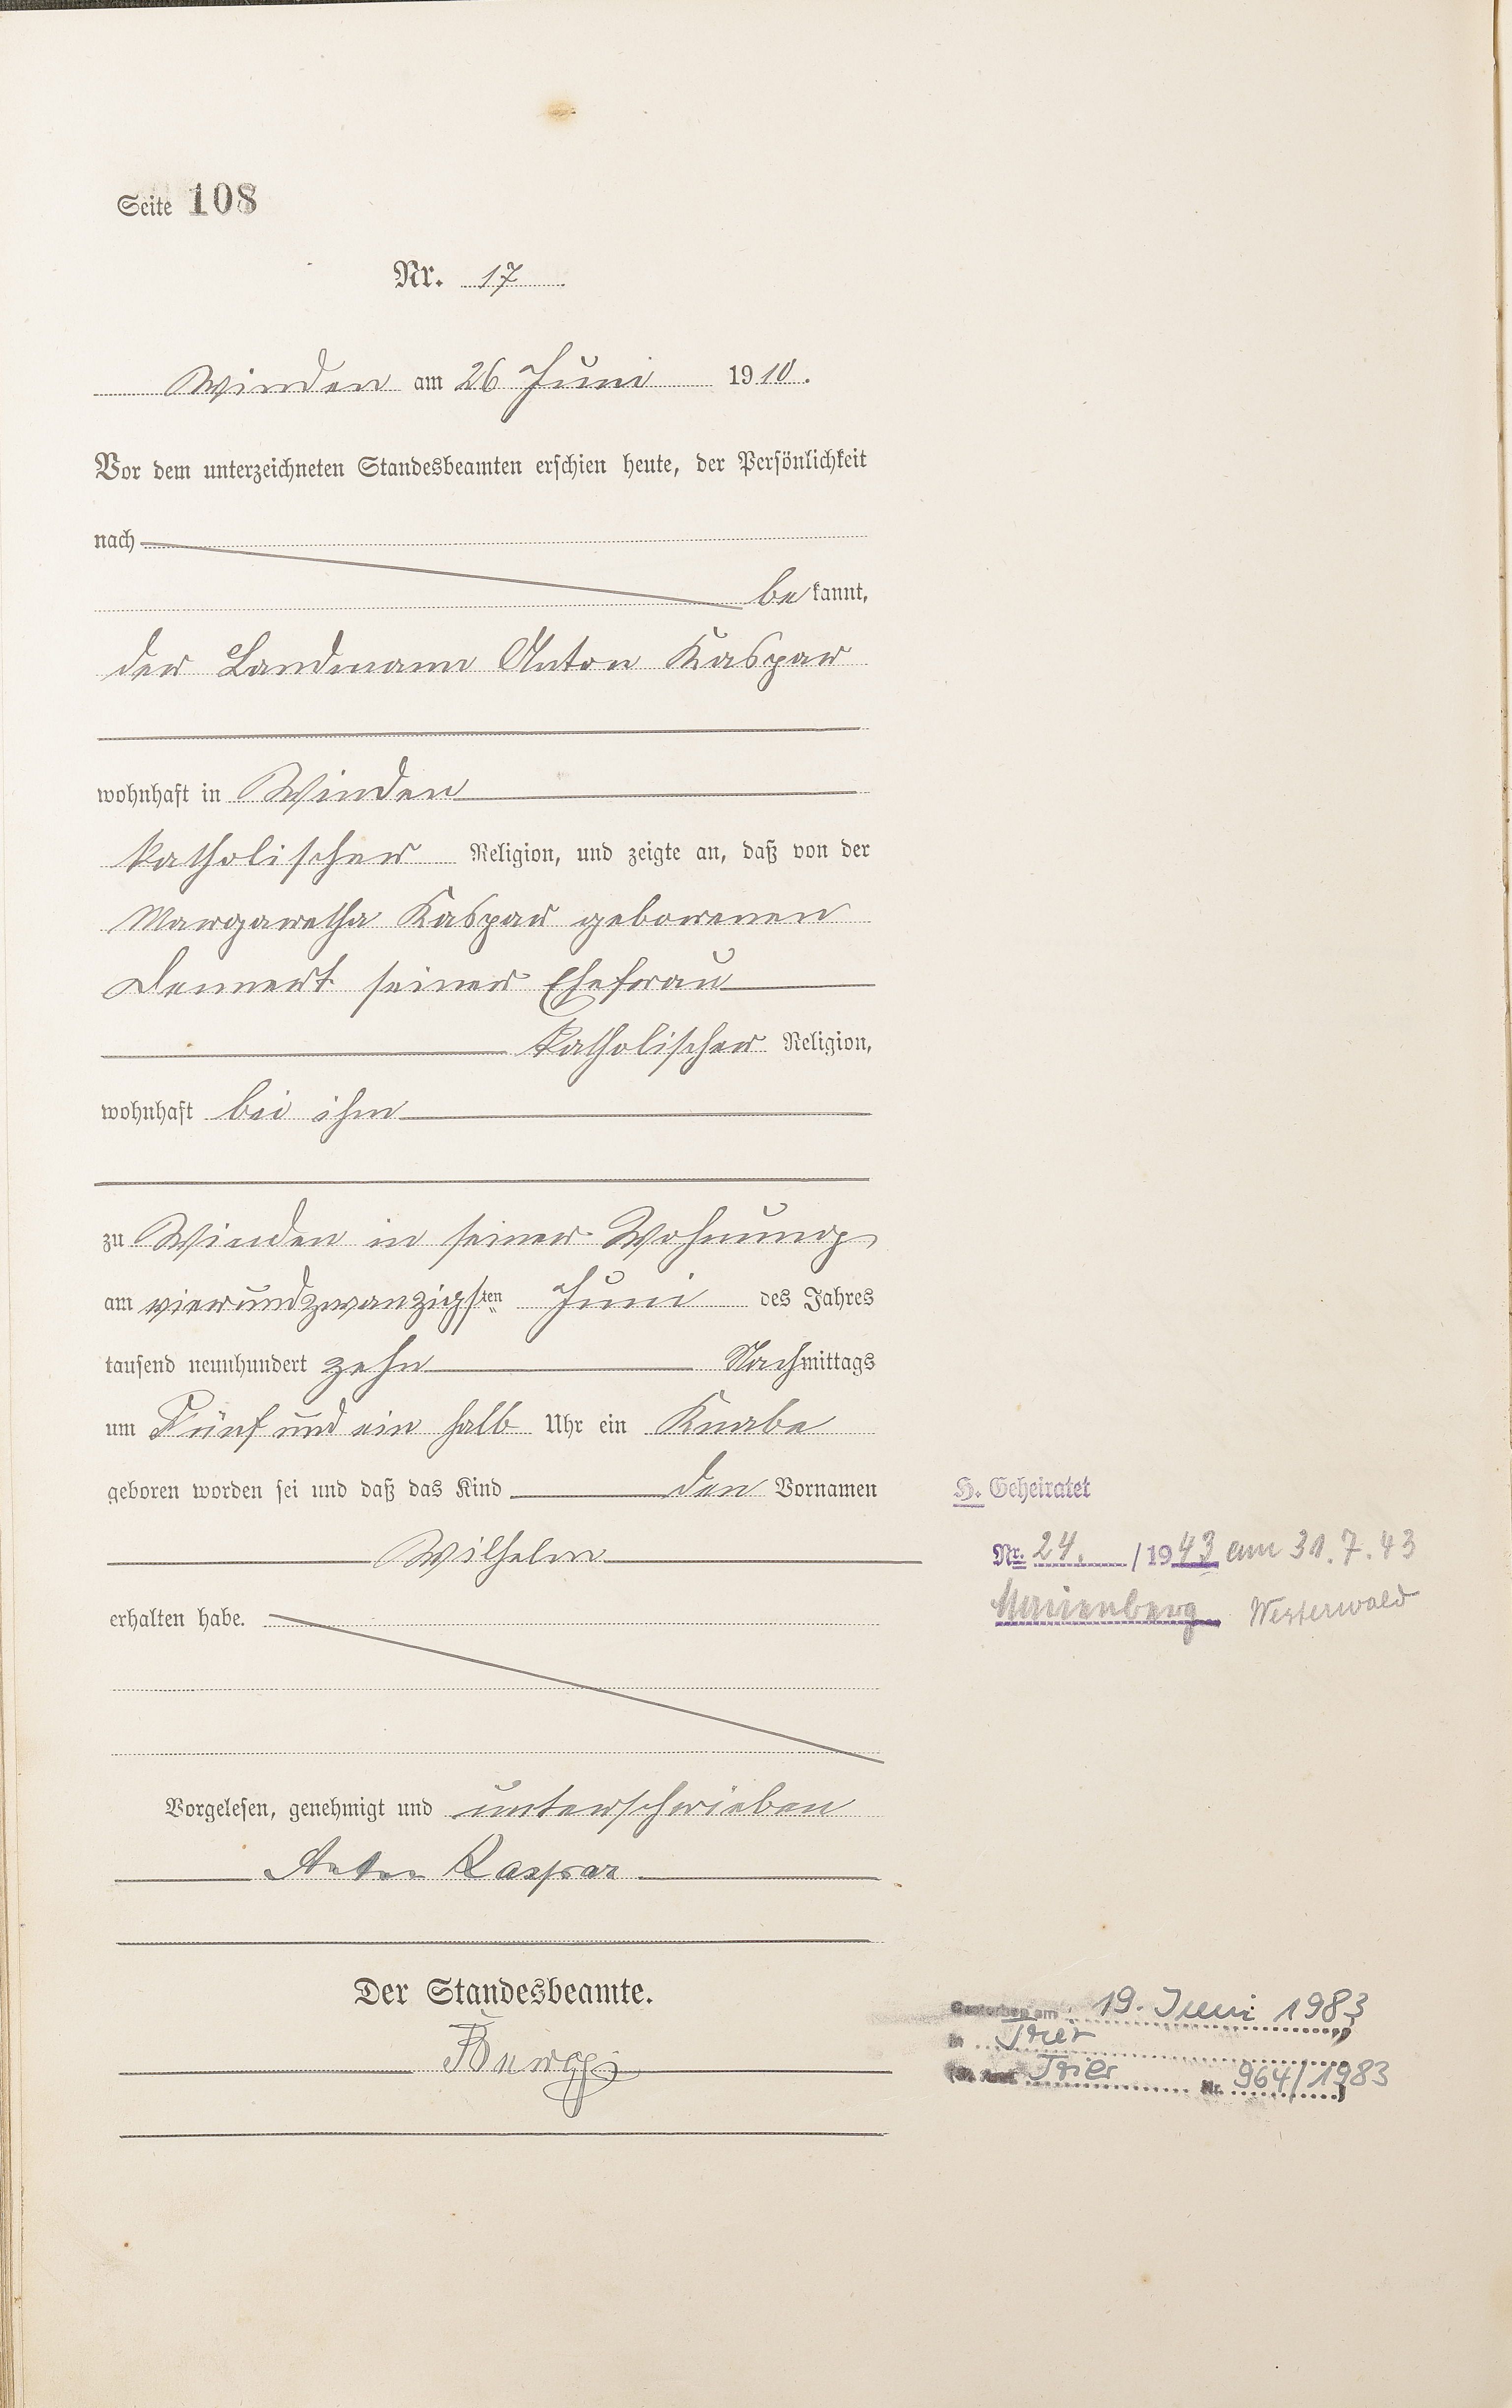 Seite 108
Nr. 17
Winden am 26 Juni 1910.
Vor dem unterzeichneten Standesbeamten erschien heute, der Persönlichkeit
nach
be kannt,
der Landmann Anton Kaspar
wohnhaft in Winden
katholischer Religion, und zeigte an, daß von der
Margaretha Kaspar geborenen
Dennert seiner Ehefrau
katholischer Religion,
wohnhaft bei ihm
zu Winden in seiner Wohnung
am vierundzwanzigsten Juni des Jahres
tausend neunhundert zehn Nachmittags
um Fünf und ein halb Uhr ein Knabe
geboren worden sei und daß das Kind den Vornamen
Wilhelm
erhalten habe.
Vorgelesen, genehmigt und unterschrieben
Anton Kaspar
Der Standesbeamte.
H. Geheiratet
Nr. 24. /1943 am 31.7.43
Marienberg Westerwald
Gestorben am: 19. Juni 1983
in Trier
Trier Nr. 964/1983